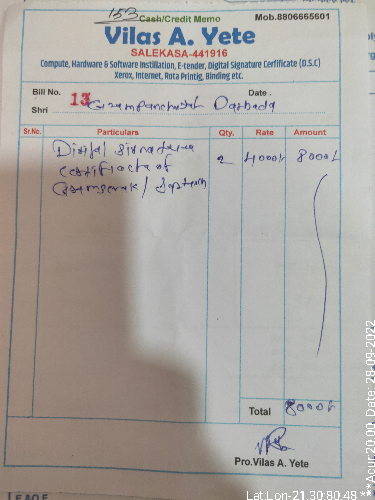 153 Cash/Credit Memo Mob.8806665601
Vilas A. Yete
SALEKASA-441916
Compute, Hardware & Software Instillation, E-tender, Digital Signature Cerfificate (D.S.C)
Xerox, Internet, Rota Printig, Binding etc.
Bill No. 13 Date.
Shri Grampanchayat Darbada
Sr.No. Particulars Qty. Rate Amount
Digital Signature 2 4000/- 8000/-
certificate of
Gramsevak/
Total 8000/-
Pro.Vilas A. Yete
E&O.E
Lat:Lon-21.30:80.48 ***Acur:20.00, Date: 28-09-2022